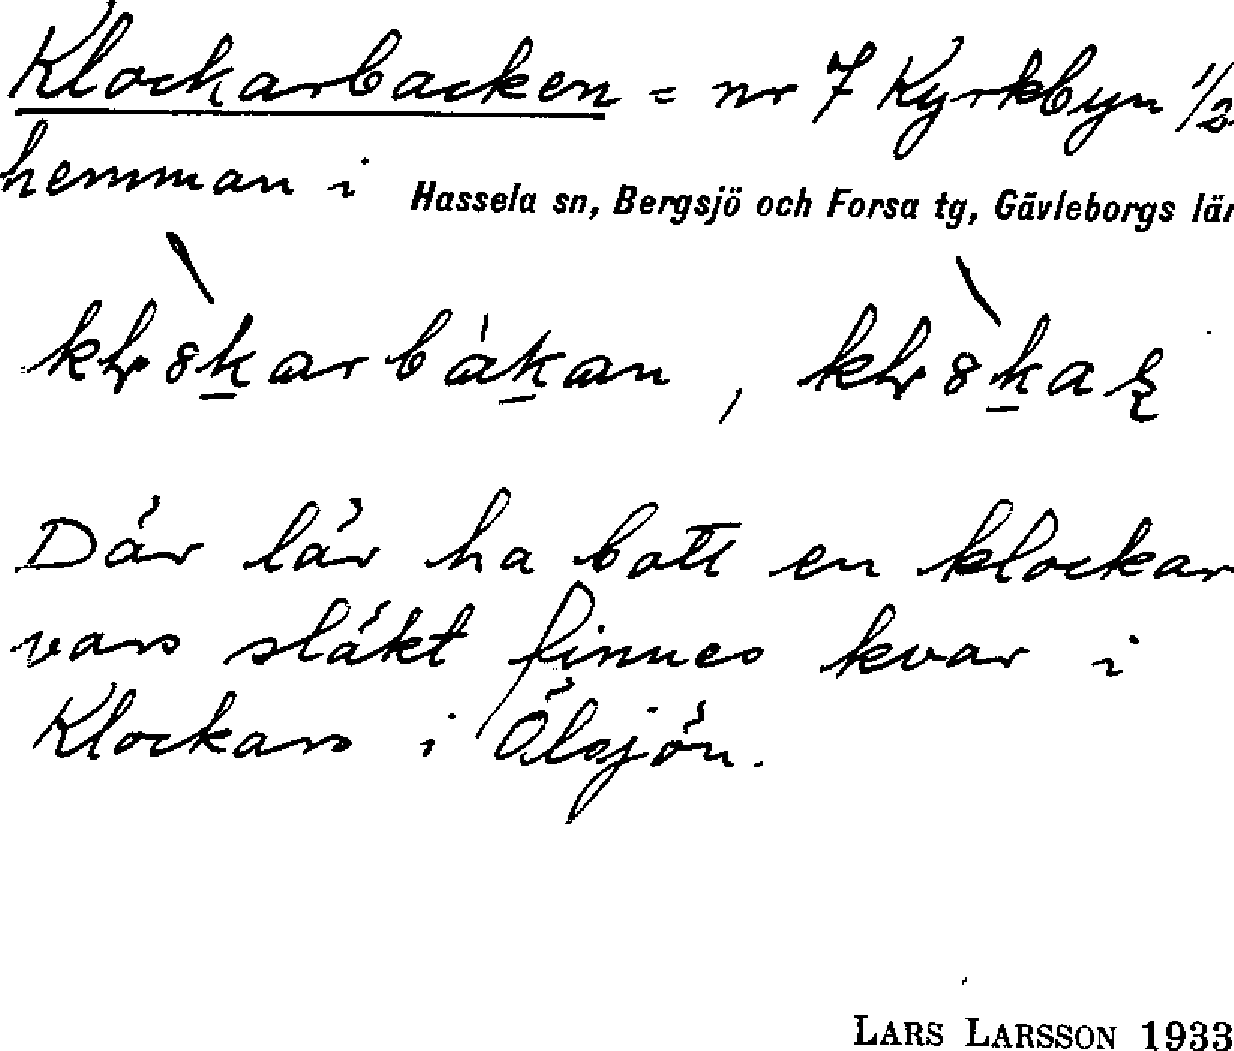 Klockarbacken = nr 7 Kyrkbyn 1/2
hemman i Hassela sn, Bergsjö och Forsa tg, Gävleborgs län
Där lär ha bott en klockar
vars släkt finnes kvar i
Klockars i Ölsjön.
LARS LARSSON 1933